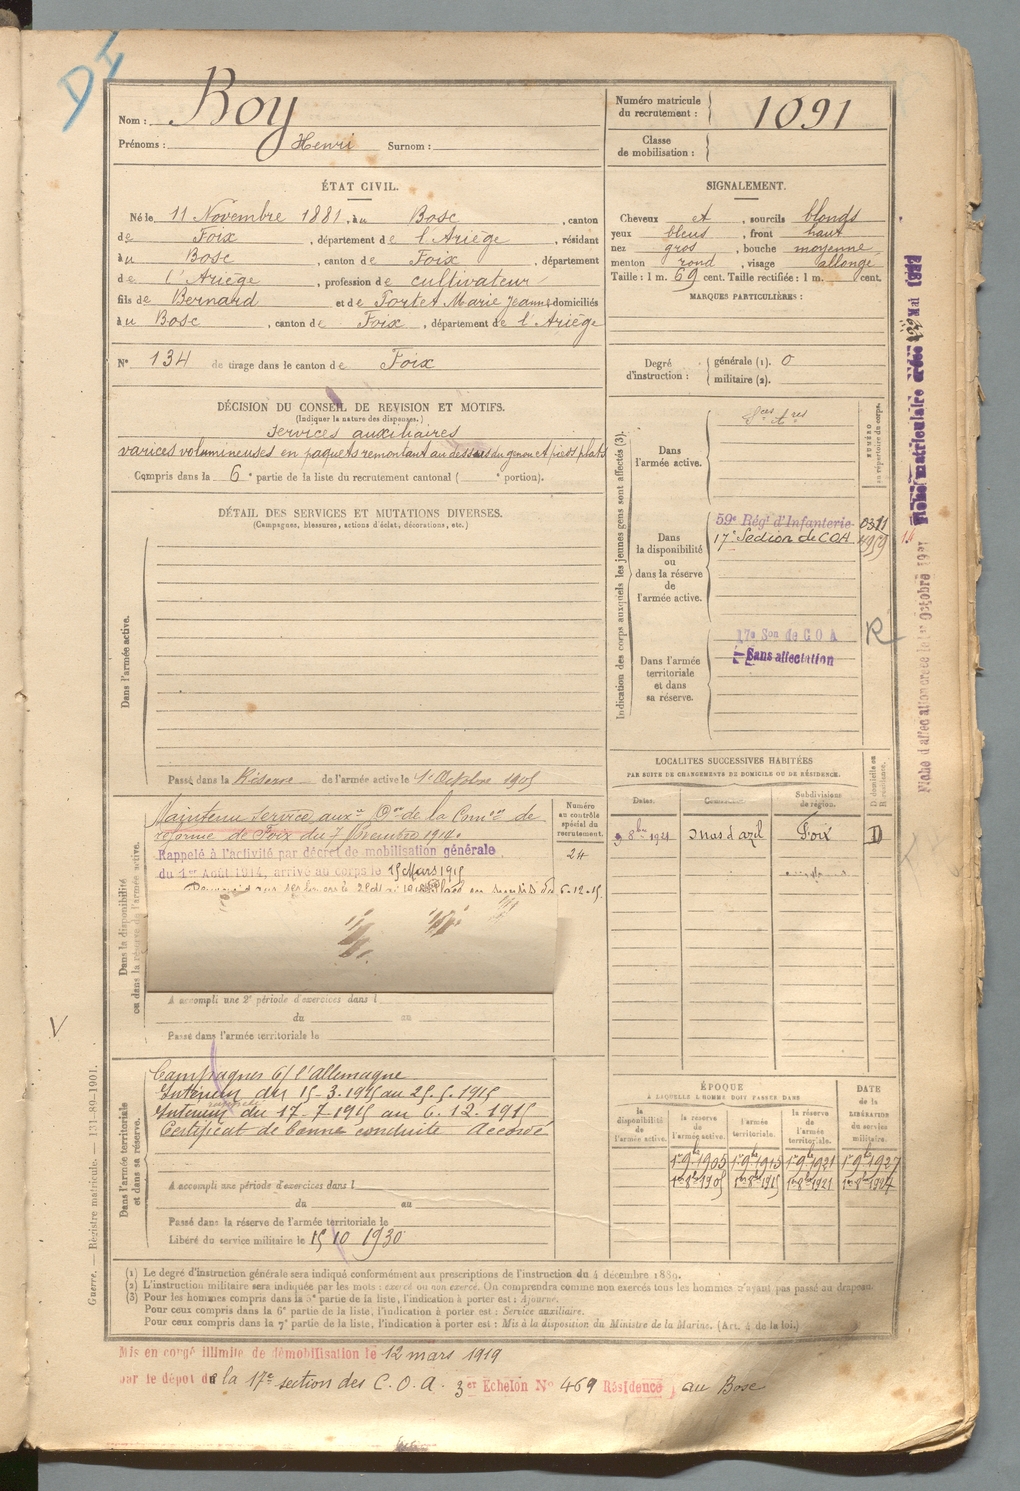 DI
Nom : Boy
Prénoms : Henri Surnom :
Numéro matricule du recrutement : 1091
Classe de mobilisation :
ÉTAT CIVIL.
Né le 11 Novembre 1881, à u Bosc, canton
de Foix, département de l'Ariège, résidant
à u Bosc, canton de Foix, département
de l'Ariège, profession de cultivateur
fils de Bernard et de Fortet Marie Jeanne domiciliés
à u Bosc, canton de Foix, département de l'Ariège
N° 134 de tirage dans le canton de Foix
SIGNALEMENT.
Cheveux et, sourcils blonds
yeux bleus, front haut
nez gros, bouche moyenne
menton rond, visage allongé
Taille : 1 m. 69 cent. Taille rectifiée : 1 m. cent.
MARQUES PARTICULIÈRES :
Degré d'instruction : générale (1). 0
militaire (2).
DÉCISION DU CONSEIL DE REVISION ET MOTIFS.
(Indiquer la nature des dispenses.)
Services auxiliaires
varices volumineuses en paquets remontant au dessus du genou et pieds plats
Compris dans la 6e partie de la liste du recrutement cantonal ( e portion).
DÉTAIL DES SERVICES ET MUTATIONS DIVERSES.
(Campagnes, blessures, actions d'éclat, décorations, etc.)
Dans l'armée active.
Passé dans la Réserve de l'armée active le 1er Octobre 1905
Indication des corps auxquels les jeunes gens sont affectés (3).
NUMÉRO au répertoire du corps.
Dans l'armée active.
Dans la disponibilité ou dans la réserve de l'armée active.
59e Régt d'Infanterie 0311
17e Section de COA
Dans l'armée territoriale et dans sa réserve.
17e Son de C O A
Sans affectation
R
Fiche matriculaire créée Mai
Fiche d'affectation créée le 1er Octobre 1921
Dans la disponibilité ou dans la réserve de l'armée active.
Maintenu Service auxre Don de la Comon de
réforme de Foix du 7 Novembre 1914.
Rappelé à l'activité par décret de mobilisation générale
du 1er Août 1914, arrivé au corps le 15 Mars 1915
Placé en sursis du 6.12.15.
Numéro au contrôle spécial du recrutement.
24
A accompli une 2e période d'exercices dans l
du au
Passé dans l'armée territoriale le
LOCALITÉS SUCCESSIVES HABITÉES
PAR SUITE DE CHANGEMENTS DE DOMICILE OU DE RÉSIDENCE.
Dates. Communes. Subdivisions de région. D domicile ou R résidence.
9 8bre 1921 Mas d'azil Foix D
V
Dans l'armée territoriale et dans sa réserve.
Campagnes c/ l'Allemagne
Intérieur du 15-3.1915 au 25.5.1915
Intérieur du 17-7.1915 au 6.12.1915
Certificat de bonne conduite Accordé
A accompli une période d'exercices dans l
du au
Passé dans la réserve de l'armée territoriale le
Libéré du service militaire le 15 10 1930
ÉPOQUE
À LAQUELLE L'HOMME DOIT PASSER DANS
DATE de la LIBÉRATION du service militaire.
la disponibilité de l'armée active. la réserve de l'armée active. l'armée territoriale. la réserve de l'armée territoriale.
1er 9bre 1905 1er 9bre 1915 1er 9bre 1921 1er 9bre 1927
1er 8bre 1905 1er 8bre 1915 1er 8bre 1921 1er 8bre 1927
Guerre. — Registre matricule. — 131-89-1901.
(1) Le degré d'instruction générale sera indiqué conformément aux prescriptions de l'instruction du 4 décembre 1889.
(2) L'instruction militaire sera indiquée par les mots : exercé ou non exercé. On comprendra comme non exercés tous les hommes n'ayant pas passé au drapeau.
(3) Pour les hommes compris dans la 5e partie de la liste, l'indication à porter est : Ajourné.
Pour ceux compris dans la 6e partie de la liste, l'indication à porter est : Service auxiliaire.
Pour ceux compris dans la 7e partie de la liste, l'indication à porter est : Mis à la disposition du Ministre de la Marine. (Art. 4 de la loi.)
Mis en congé illimité de démobilisation le 12 mars 1919
par le dépot de la 17e section des C.O.A. 3er Echelon N° 469 Résidence au Bosc